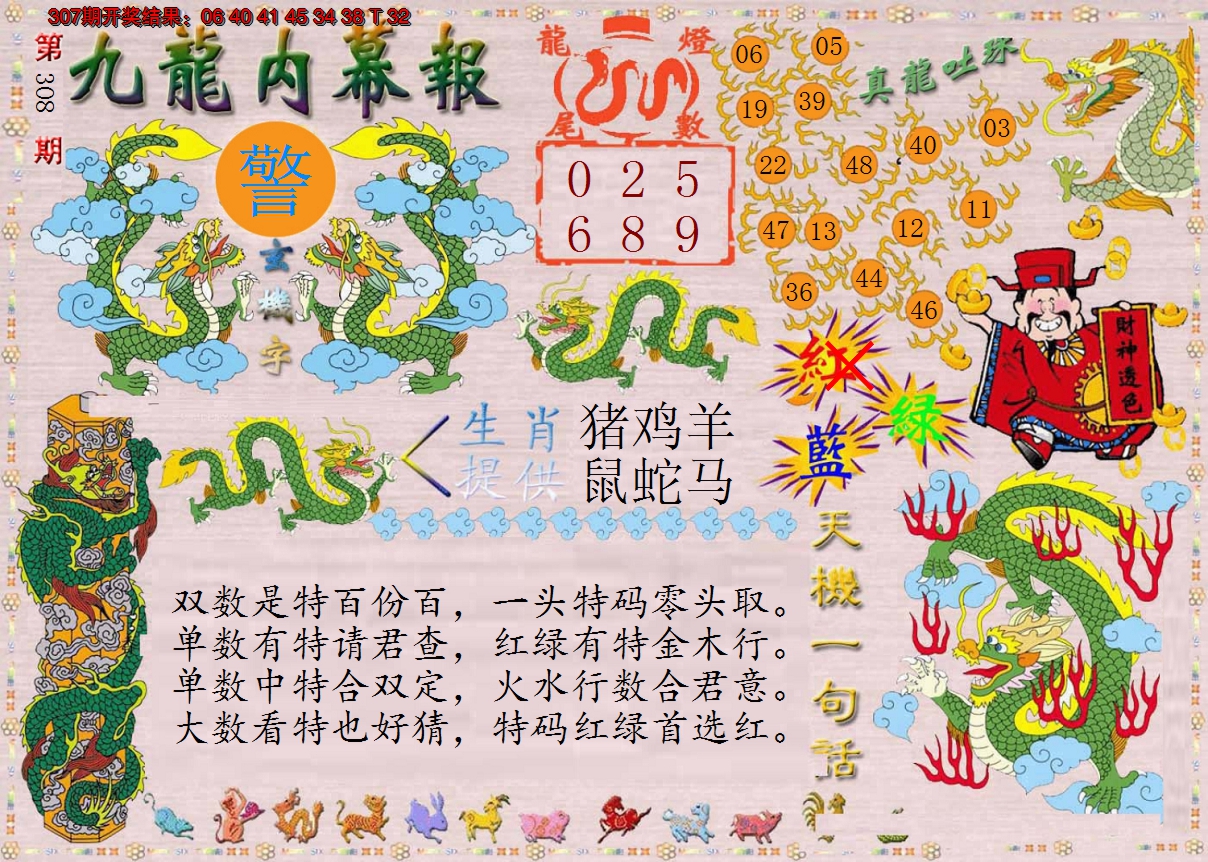 307期开奖结果：06 40 41 45 34 38 T 32
第308期
九龍内幕報
警
玄機字
龍燈
尾數
0 2 5
6 8 9
真龍吐珠
06 05
19 39
03
40
22 48
11
47 13 12
44
36
46
財神透色
紅
绿
藍
生肖 猪鸡羊
提供 鼠蛇马
天機一句話
双数是特百份百，一头特码零头取。
单数有特请君查，红绿有特金木行。
单数中特合双定，火水行数合君意。
大数看特也好猜，特码红绿首选红。